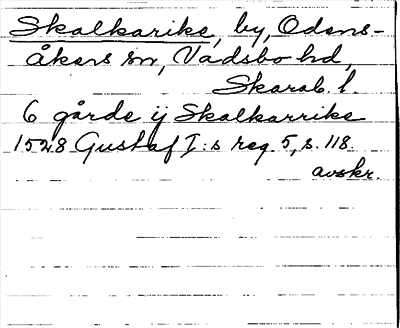 Skalkarike, by, Odens-
åkers sn, Vadsbo hd,
Skarab. l.
6 gårde ij Skalkarrike
1528 Gustaf I:s reg. 5, s. 118.
avskr.